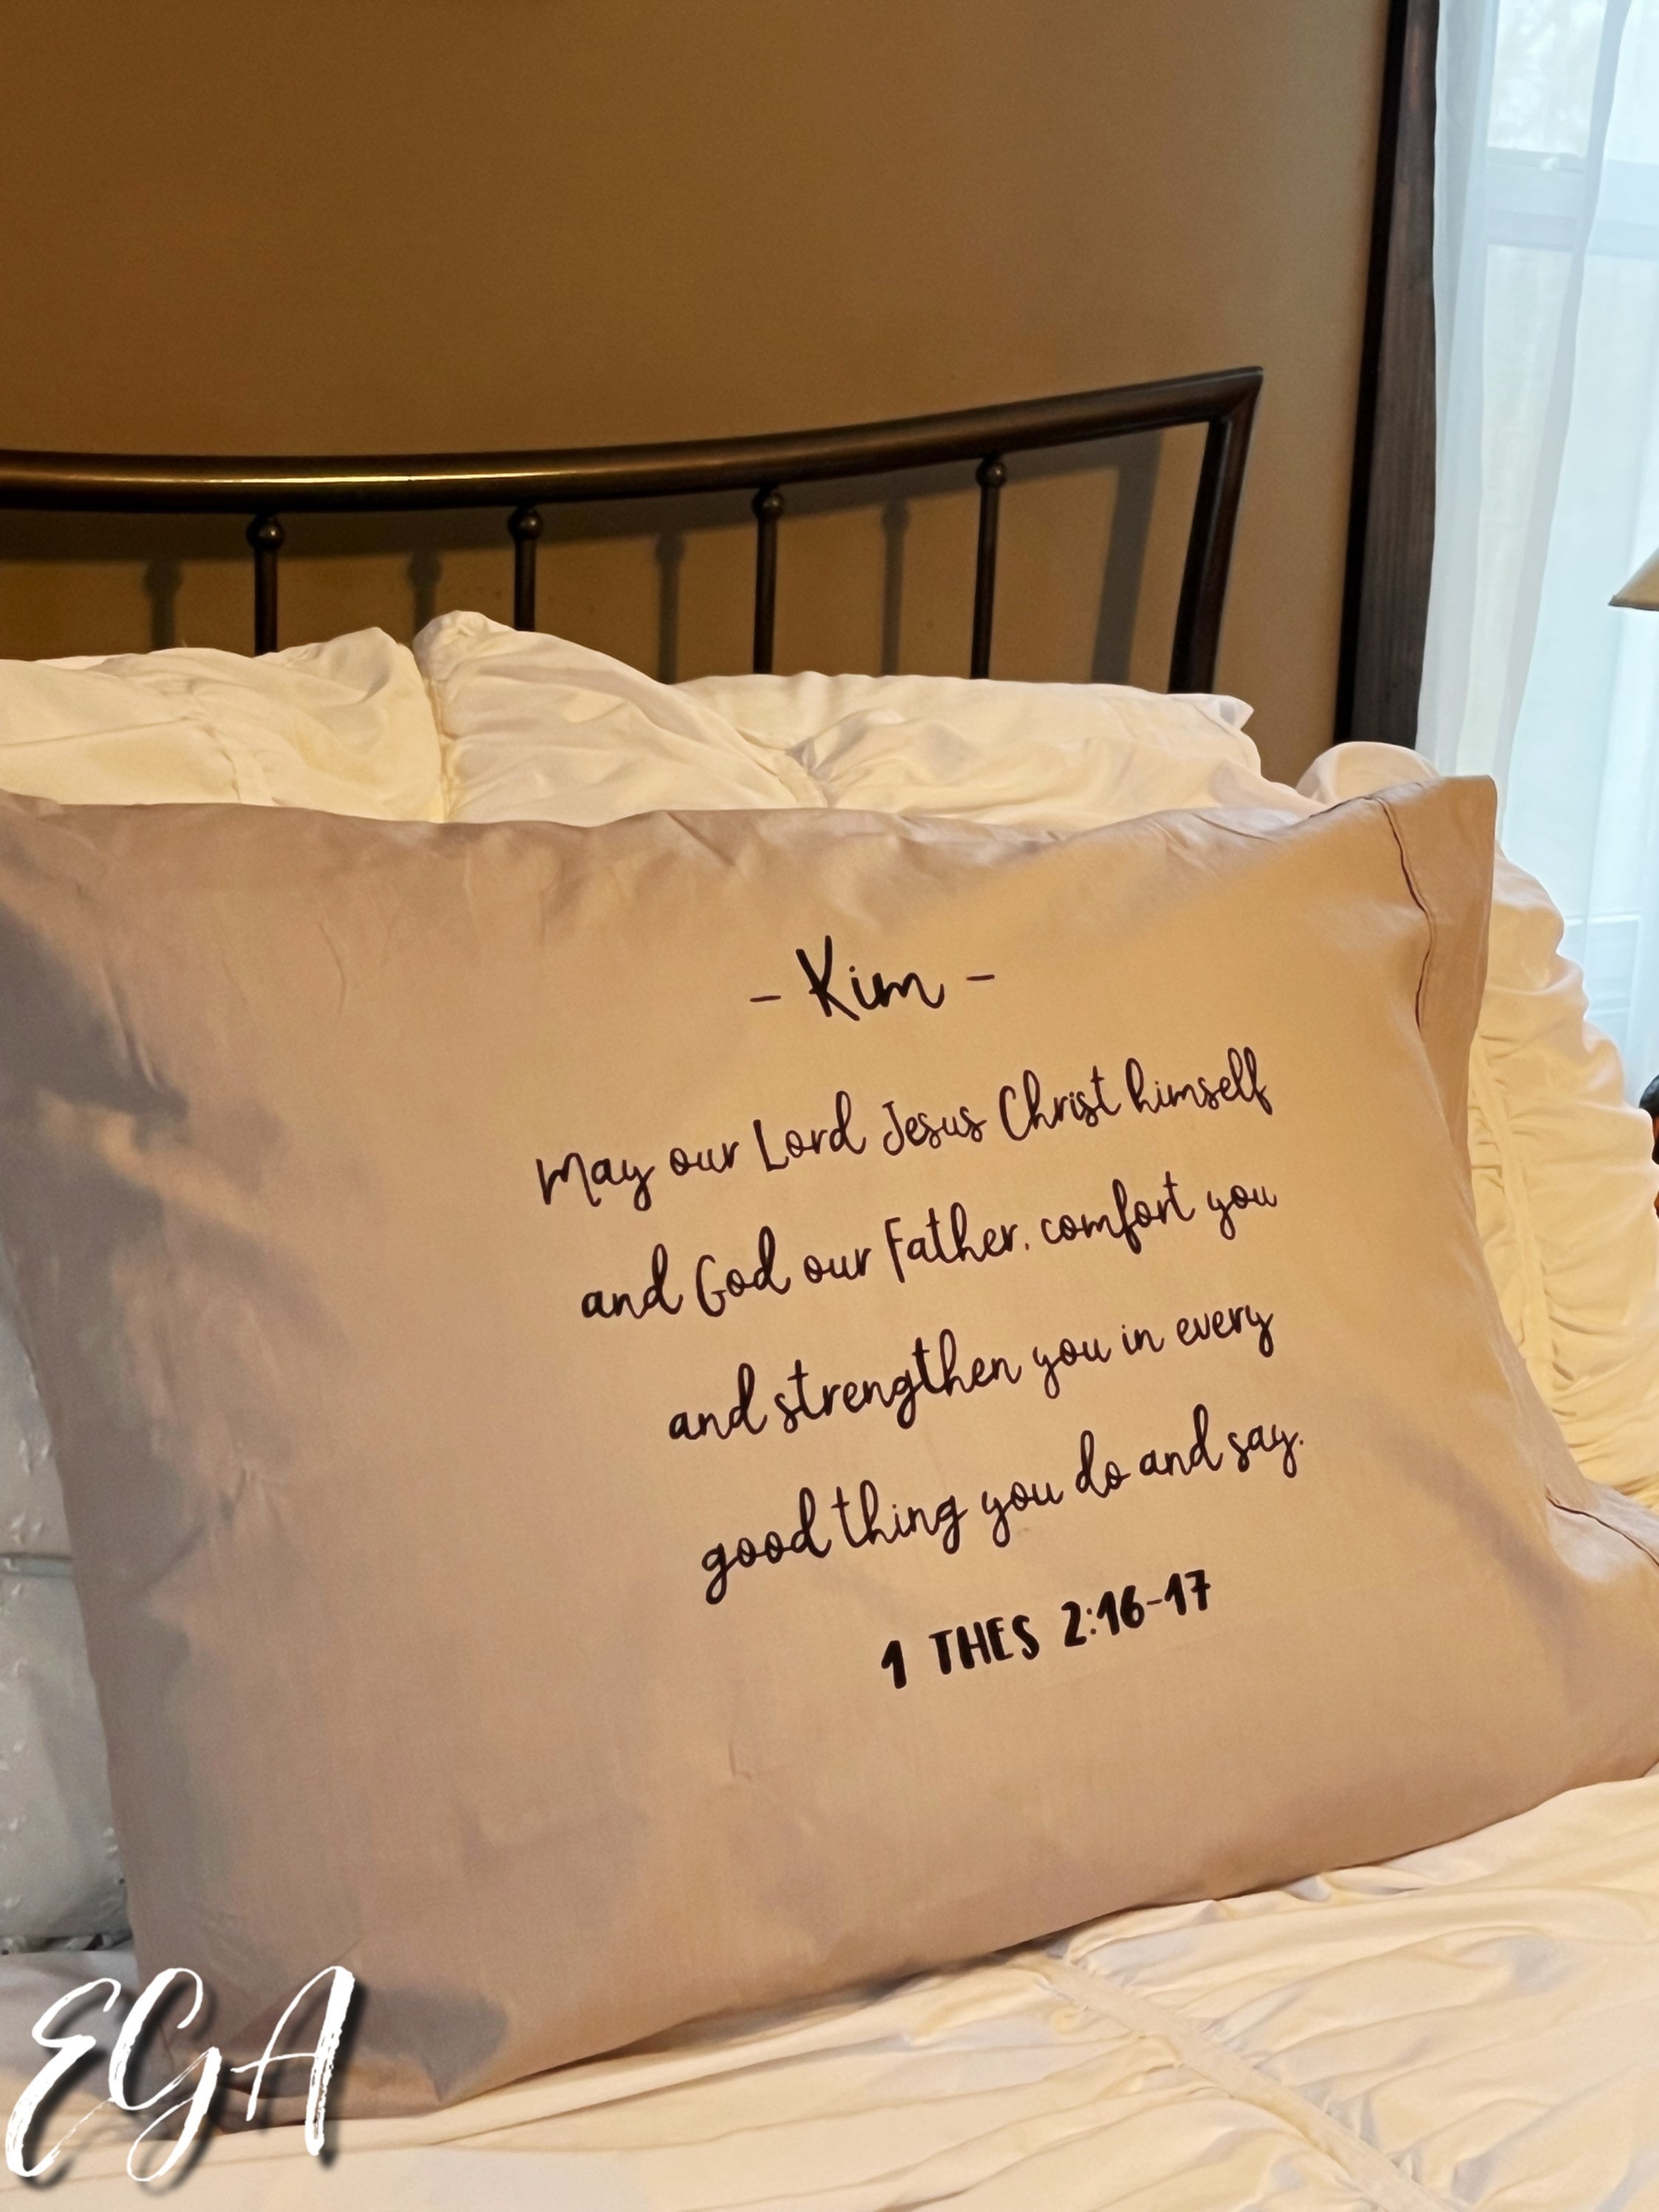 - Kim -
May our Lord Jesus Christ himself
and God our Father, comfort you
and strengthen you in every
good thing you do and say.
1 THES 2:16-17
EGA